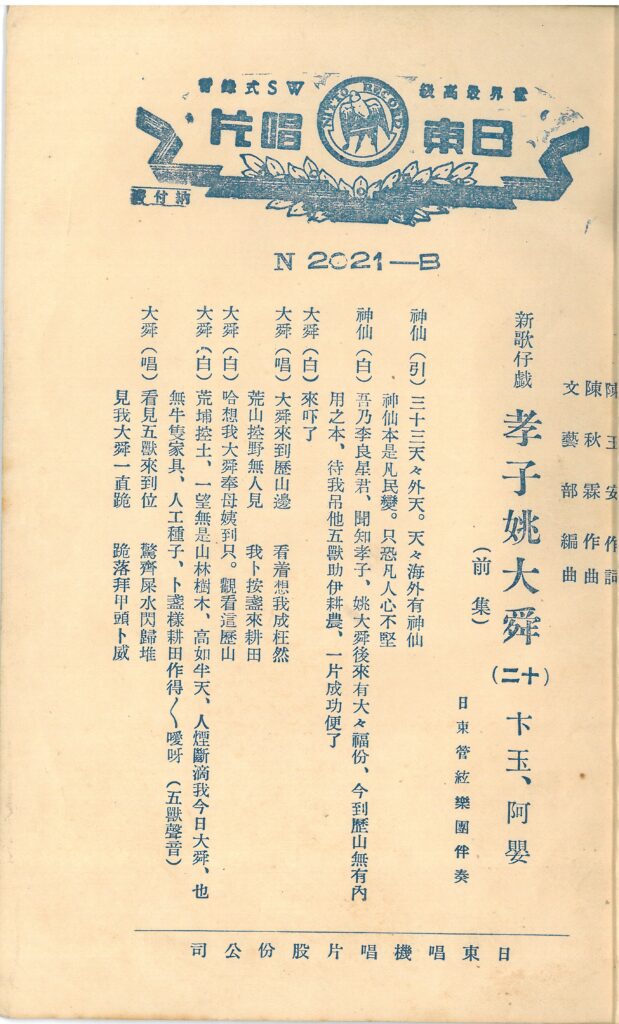 電界最高級 WS式錄音
NITTO RECORD
日東唱片
納付
N 2021—B
陳玉安作詞
陳秋霖作曲
文藝部編曲
新歌仔戲 孝子姚大舜(十二) 卞玉、阿嬰
(前集)
日東管絃樂團伴奏
神仙(引)三十三天々外天。天々海外有神仙
神仙本是凡民變。只恐凡人心不堅
神仙(白)吾乃李良星君、聞知孝子、姚大舜後來有大々福份、今到歷山無有內
用之本、待我吊他五獸助伊耕農、一片成功便了
大舜(白)來吓了
大舜(唱)大舜來到歷山邊 看着想我成枉然
荒山控野無人見 我卜按盞來耕田
大舜(白)哈想我大舜奉母姨到只。觀看這歷山
大舜(白)荒埔控土、一望無是山林樹木、高如半天、人煙斷滴我今日大舜、也
無牛隻家具、人工種子、卜盞樣耕田作得〱噯呀(五獸聲音)
大舜(唱)看見五獸來到位 驚齊屎水閃歸堆
見我大舜一直跪 跪落拜甲頭卜威
日東唱機唱片股份公司